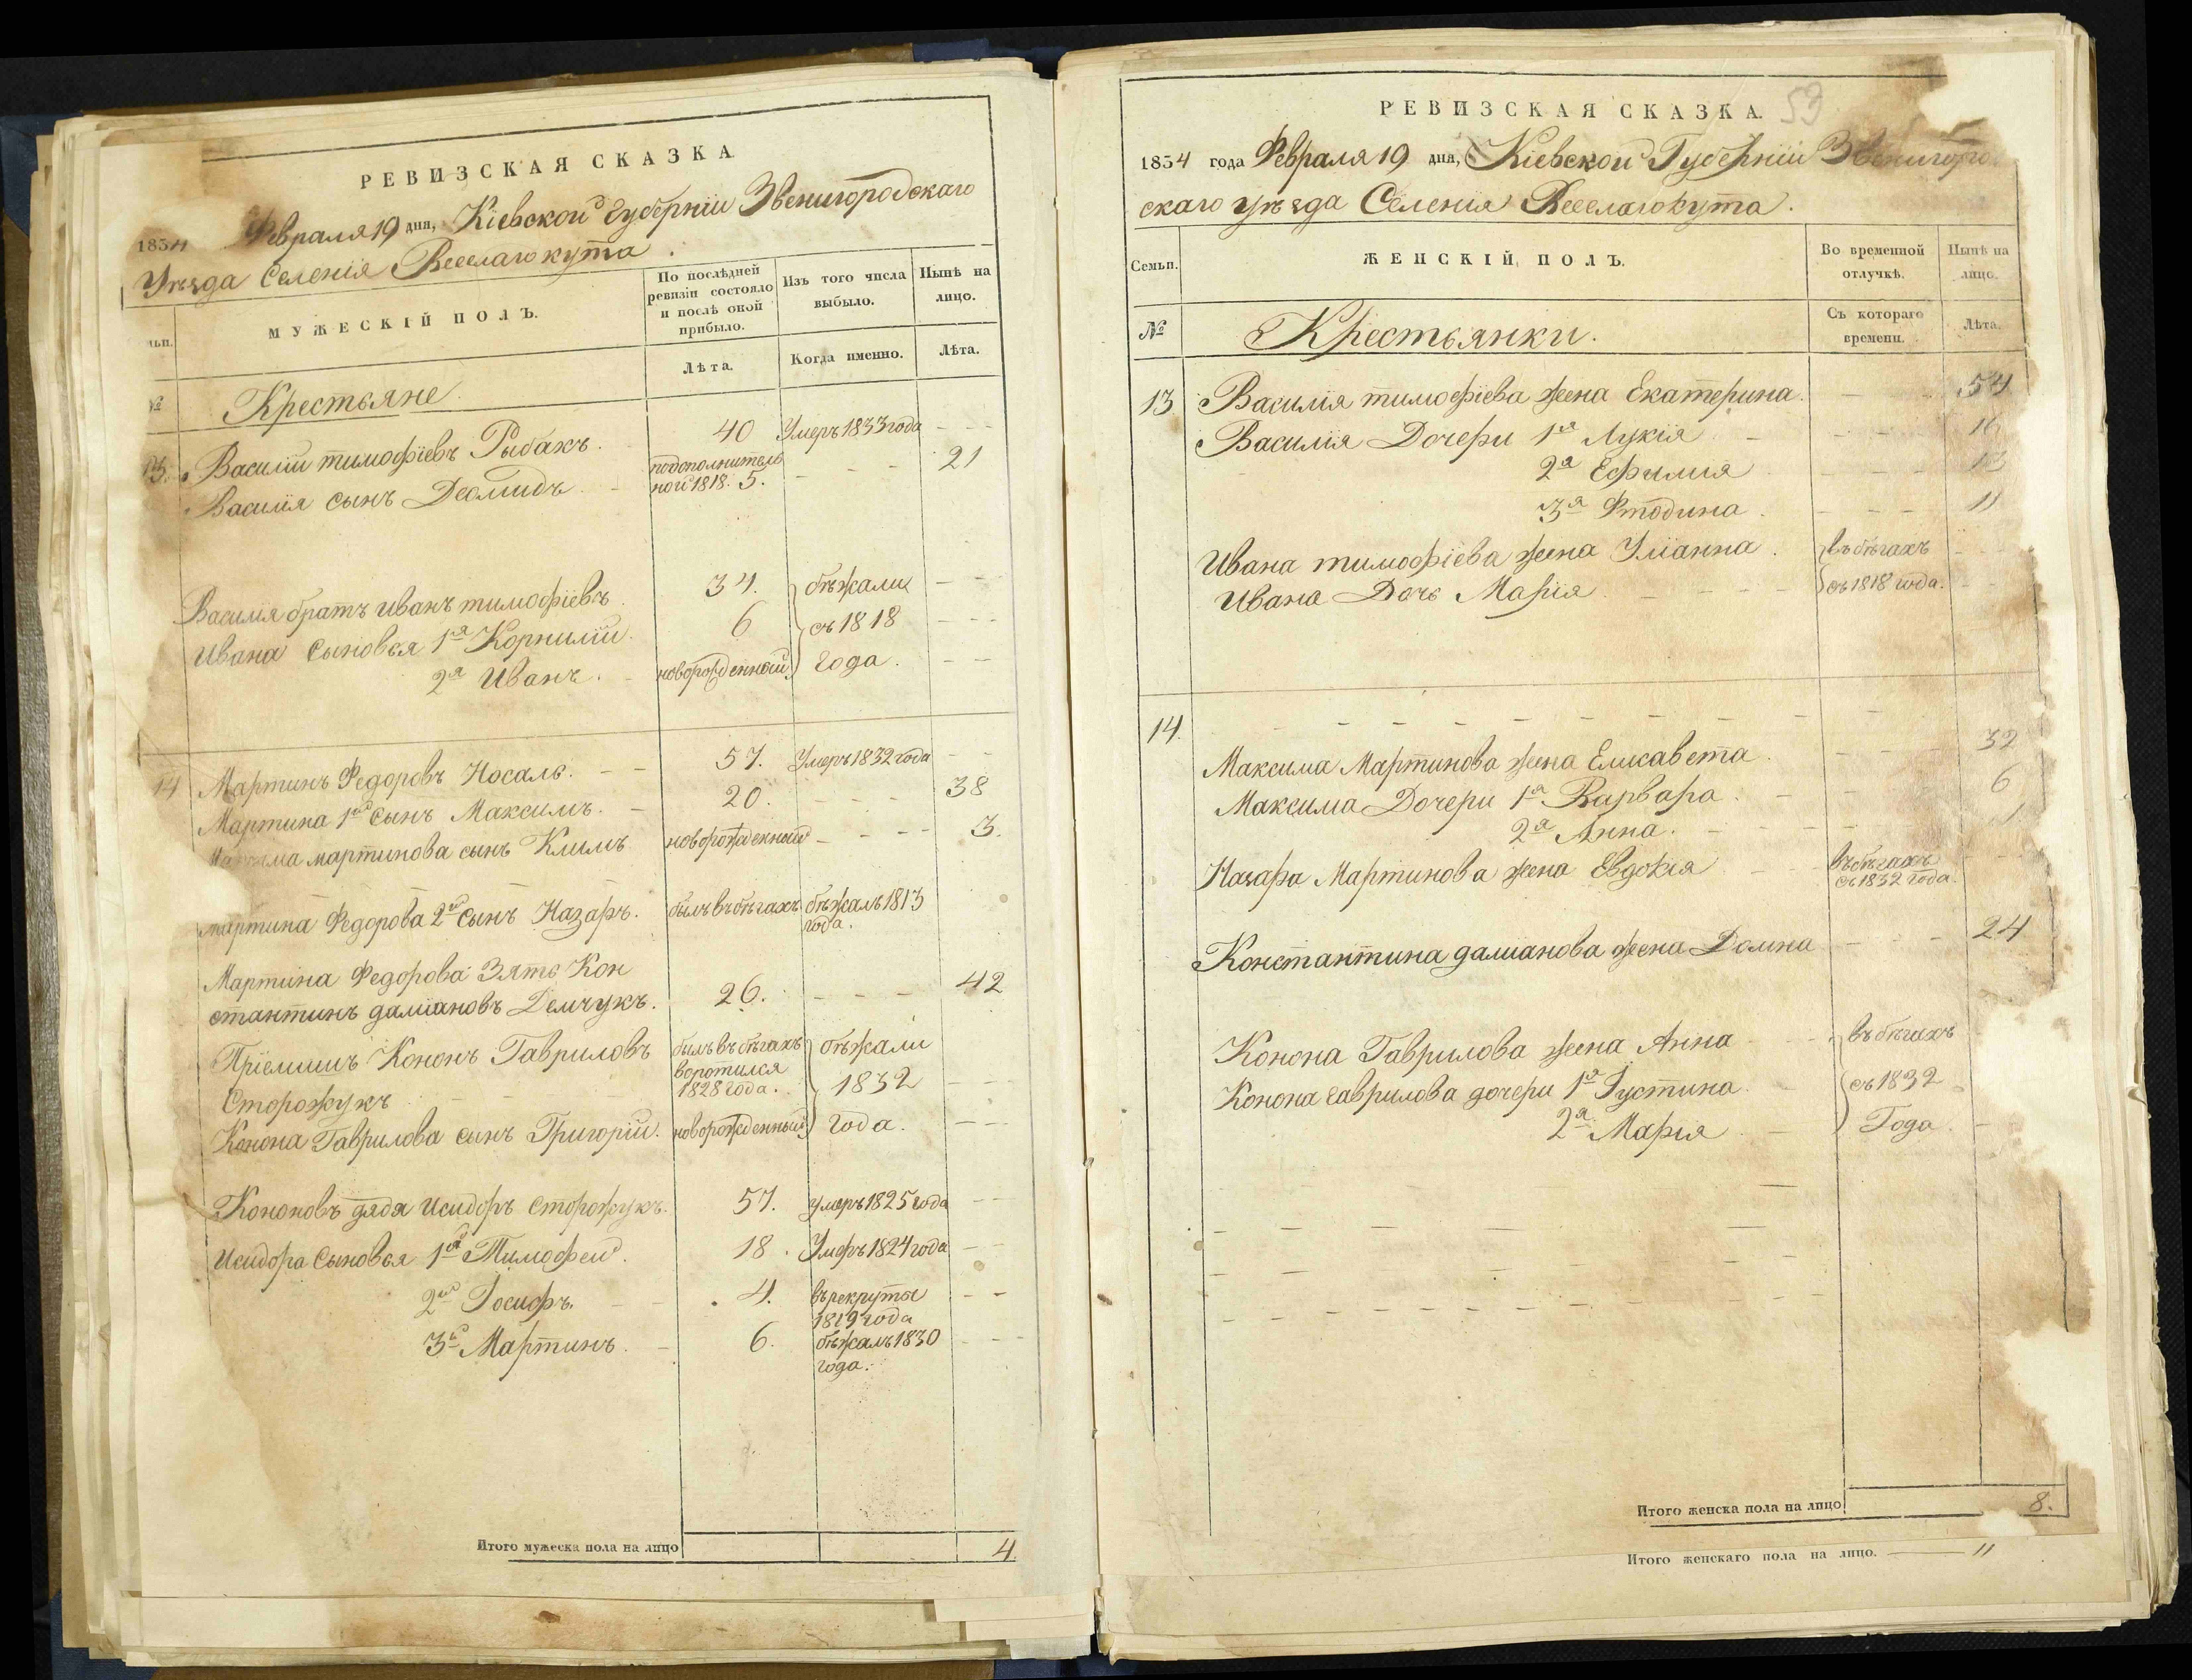 РЕВИЗСКАЯ СКАЗКА
1834 Февраля 19 дня, Кіевской губерніи Звенигородскаго
Уѣзда Селенія Веселагокута.
МУЖЕСКІЙ ПОЛЪ.
По послѣдней
ревизіи состояло
и послѣ оной
прибыло.
Изъ того числа
выбыло.
Нынѣ на
лицо.
№
Лѣта.
Когда именно.
Лѣта.
Крестьяне
13. Василій тимофіевъ Рыбакъ. 40 Умеръ 1833 года - - -
Василія сынъ Деомидъ подополнитель
ной 1818. 5. - - - 21
Василія братъ иванъ тимофіевъ 34. бѣжали - -
Ивана Сыновья 1й Корнилій. 6 съ 1818 - - -
2й Иванъ. новорожденной года. - -
14 Мартинъ Федоровъ Носаль. - - 57. Умеръ 1832 года - -
Мартина 1й сынъ Максимъ. - 20. - - - 38
Максима мартинова сынъ Климъ новорожденный - - - - 3.
Мартина Федорова 2й сынъ Назаръ. былъ въ бѣгахъ бѣжалъ 1813
года.
Мартина Федорова Зять Кон
стантинъ даміановъ Демчукъ. 26. - - - 42
Пріемишъ Кононъ Гавриловъ былъ въ бѣгахъ бѣжали
воротился
Сторожукъ 1828 года. 1832 - - -
Конона Гаврилова сынъ Григорій. новорожденный года. - - -
Кононовъ дядя Исидоръ Сторожукъ. 57. умеръ 1825 года - -
Исидора Сыновья 1й Тимофей. 18. Умеръ 1824 года - -
2й Іосифъ. - - 4. въ рекруты - -
1829 года
3й Мартинъ. - 6. бѣжалъ 1830 - - -
года.
Итого мужеска пола на лицо 4.
53
РЕВИЗСКАЯ СКАЗКА.
1834 года Февраля 19 дня, Кіевской Губерніи Звенигород
скаго уѣзда Селенія Веселагокута.
Семьи.
ЖЕНСКІЙ ПОЛЪ.
Во временной
отлучкѣ.
Нынѣ на
лицо.
№
Крестьянки.
Съ котораго
времени.
Лѣта.
13 Василія тимофіева жена Екатерина. - - - 54
Василія Дочери 1я Лукія - - - - 16
2я Ефимія - - - 13
3я - - - 11
Ивана тимофіева жена Уліанна. въ бѣгахъ - -
Ивана Дочь Марія. - - - - съ 1818 года. - -
14. - - - - - - - - - -
Максима Мартинова жена Елисавета. - - - 32
Максима Дочери 1я Варвара. - - - 6
2я Анна. - - - - - 1
Назара Мартинова жена Евдокія - въ бѣгахъ - -
съ 1832 года.
Константина даміанова жена Домна - - - 24
Конона Гаврилова жена Анна - - въ бѣгахъ
Конона гаврилова дочери 1я Іустина - съ 1832 -
2я Марія - - Года. -
Итого женска пола на лицо 8.
Итого женскаго пола на лицо. — 11